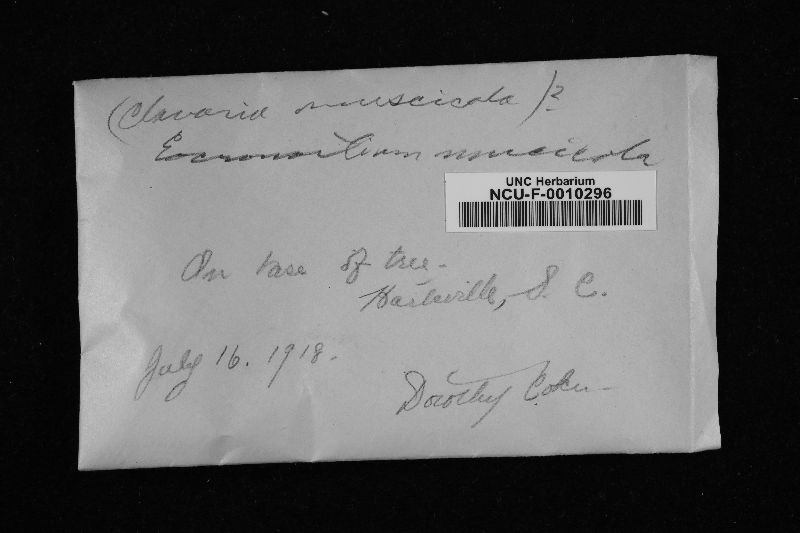 (Clavaria muscicola)?
Eocronartium muscicola
UNC Herbarium
NCU-F-0010296
On base of tree-
Hartsville, S. C.
July 16. 1918.
Dorothy Coker